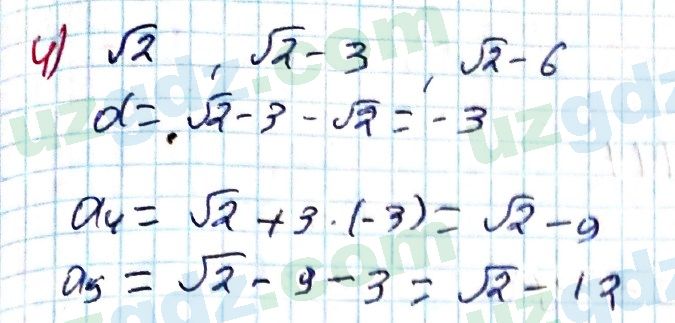 4) √2 , √2 - 3 , √2 - 6
d = √2 - 3 - √2 = -3
a₄ = √2 + 3 · (-3) = √2 - 9
a₅ = √2 - 9 - 3 = √2 - 12
uzgdz.com